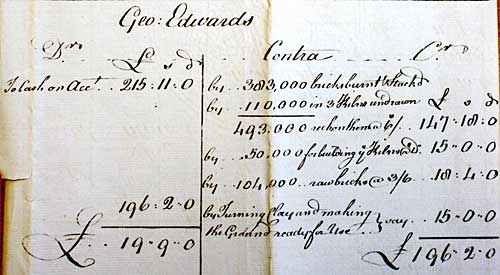 Geo: Edwards
Dr £ s d Contra Cr
To Cash on Acct. 215"11"0
by ... 383,000 bricks burnt & Stack'd
by ... 110,000 in 3 Kilns undrawn £ s d
493,000 reckon them @ 6/. 147"18"0
by ... 50,000 for building ye Kilns @ D. 15"0"0
by ... 104,000 .. raw bricks @ 3/6 .. 18"4"0
by Turning Clay and making
the Ground ready for Use ... } say .. 15"0"0
196"2"0
£ 19"9"0
£ 196"2"0